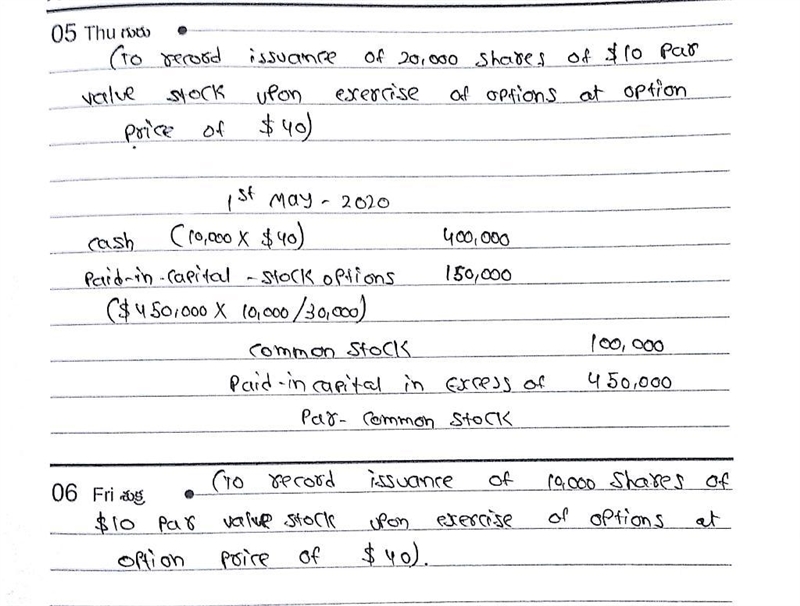 05 Thu గురు
(To record issuance of 20,000 shares of $10 Par
value stock upon exercise of options at option
price of $40)
1st May - 2020
cash (10,000 X $40) 400,000
Paid-in-capital - stock options 150,000
($450,000 X 10,000/30,000)
Common stock 100,000
Paid-in capital in excess of 450,000
Par- common stock
06 Fri శుక్ర (To record issuance of 10,000 shares of
$10 Par value stock upon exercise of options at
option price of $40).